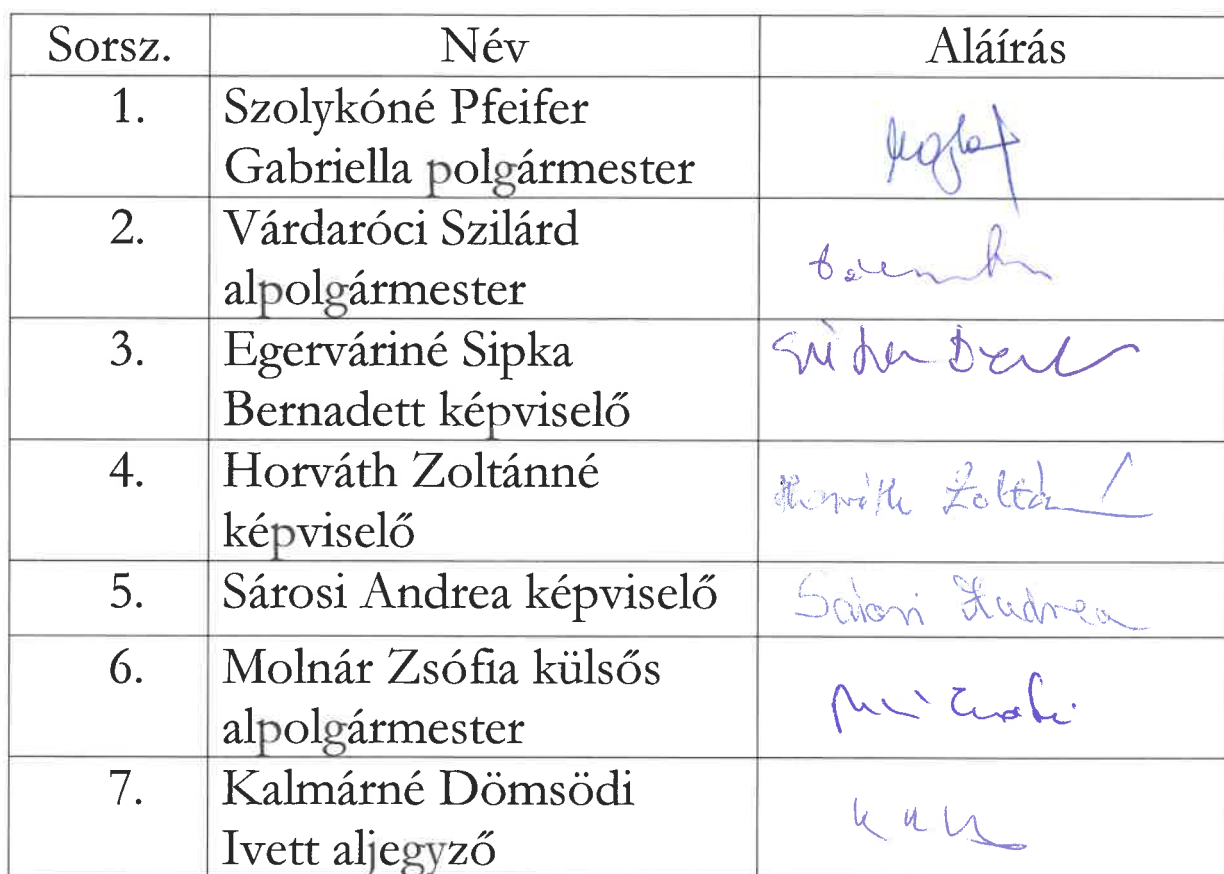 Sorsz. Név Aláírás
1. Szolykóné Pfeifer
Gabriella polgármester
2. Várdaróci Szilárd
alpolgármester
3. Egerváriné Sipka
Bernadett képviselő
4. Horváth Zoltánné
képviselő
Horváth Zoltán
5. Sárosi Andrea képviselő Sárosi Andrea
6. Molnár Zsófia külsős
alpolgármester
7. Kalmárné Dömsödi
Ivett aljegyző